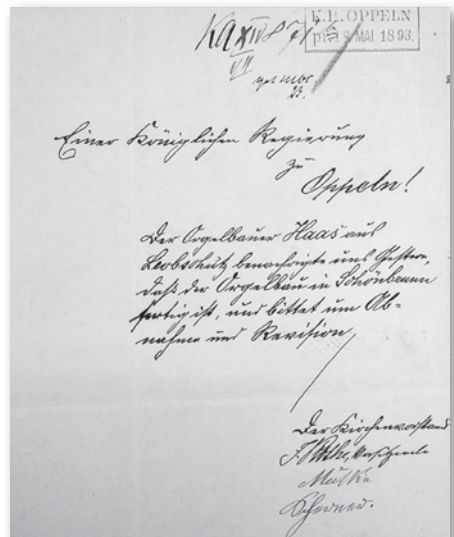 K.R. OPPELN
pr. 18. MAI 1893.
Einer Königlichen Regierung
zu
Oppeln!
Der Orgelbauer Haas aus
Leobschütz benachrigte uns Gestern,
daß der Orgelbau in Schönbrunn
fertig ist, und bittet um Ab-
nahme und Revision
Der Kirchenvorstand